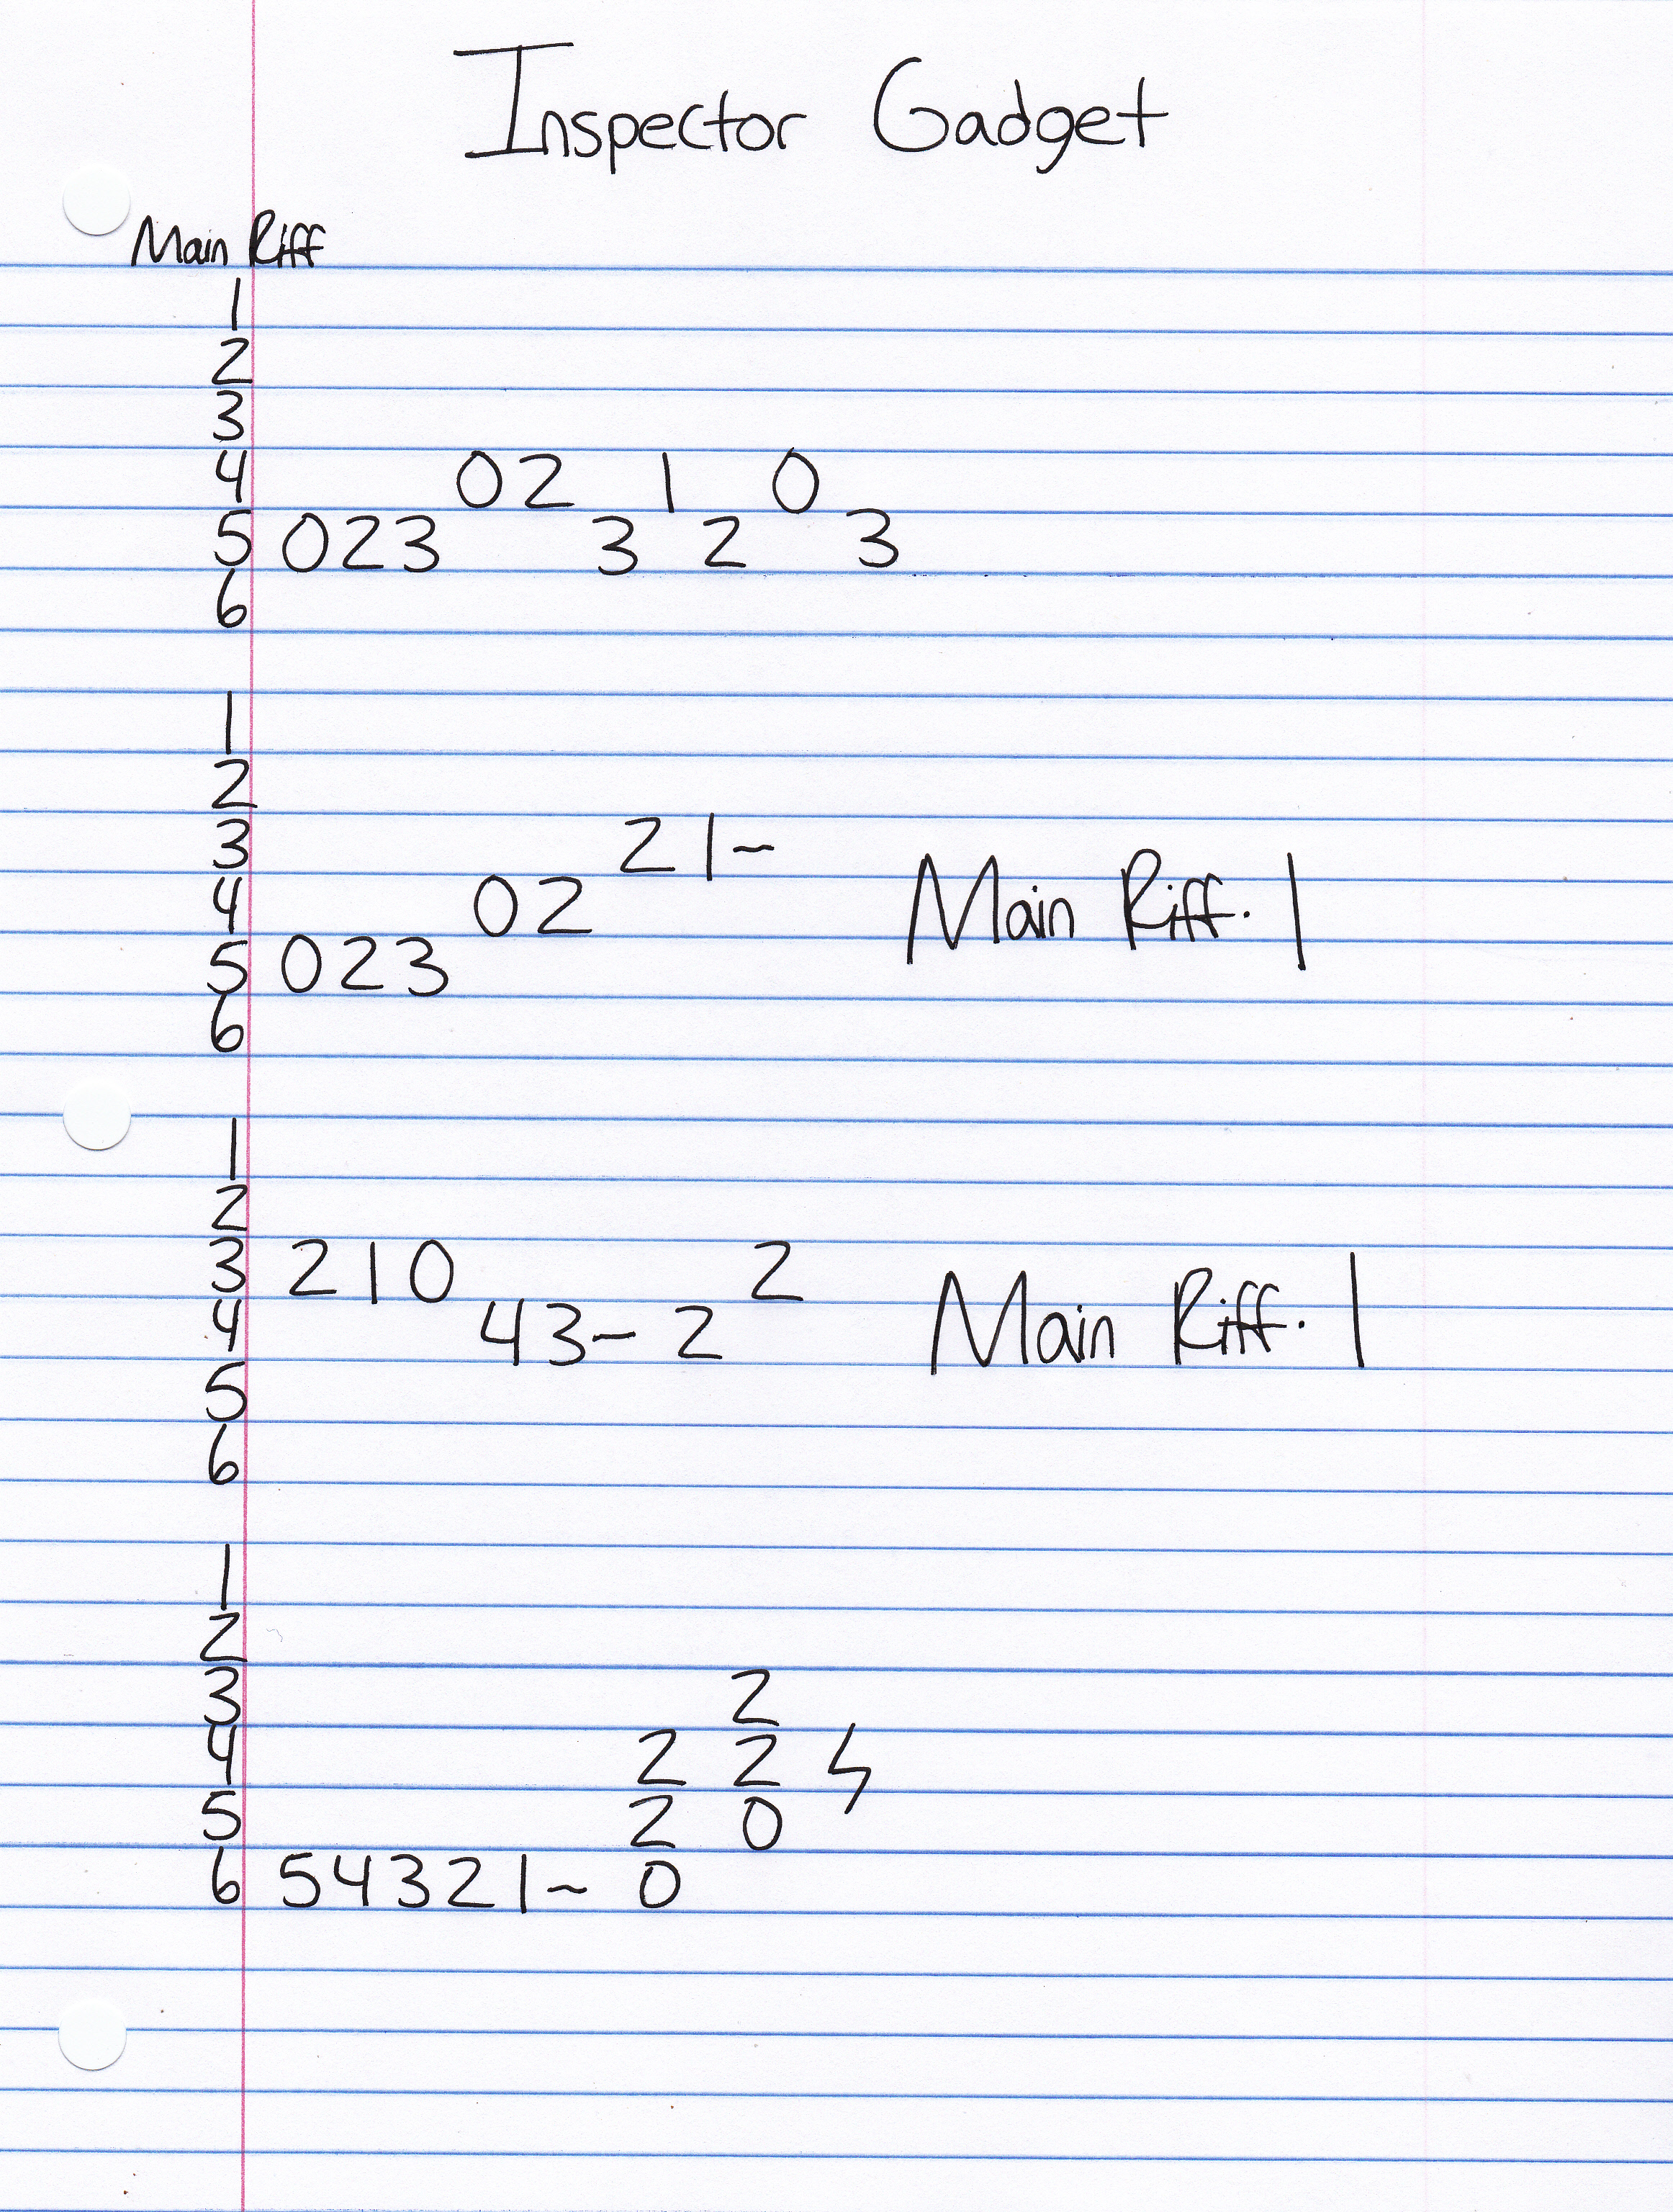 Inspector Gadget
Main Riff
1
2
3
4 02 1 0
5 023 3 2 3
6
1
2
3 21~
4 02
5 023
6
Main Riff. 1
1
2
3 210 2
4 43~ 2
5
6
Main Riff. 1
1
2
3 2
4 2 2
5 2 0
6 54321~ 0